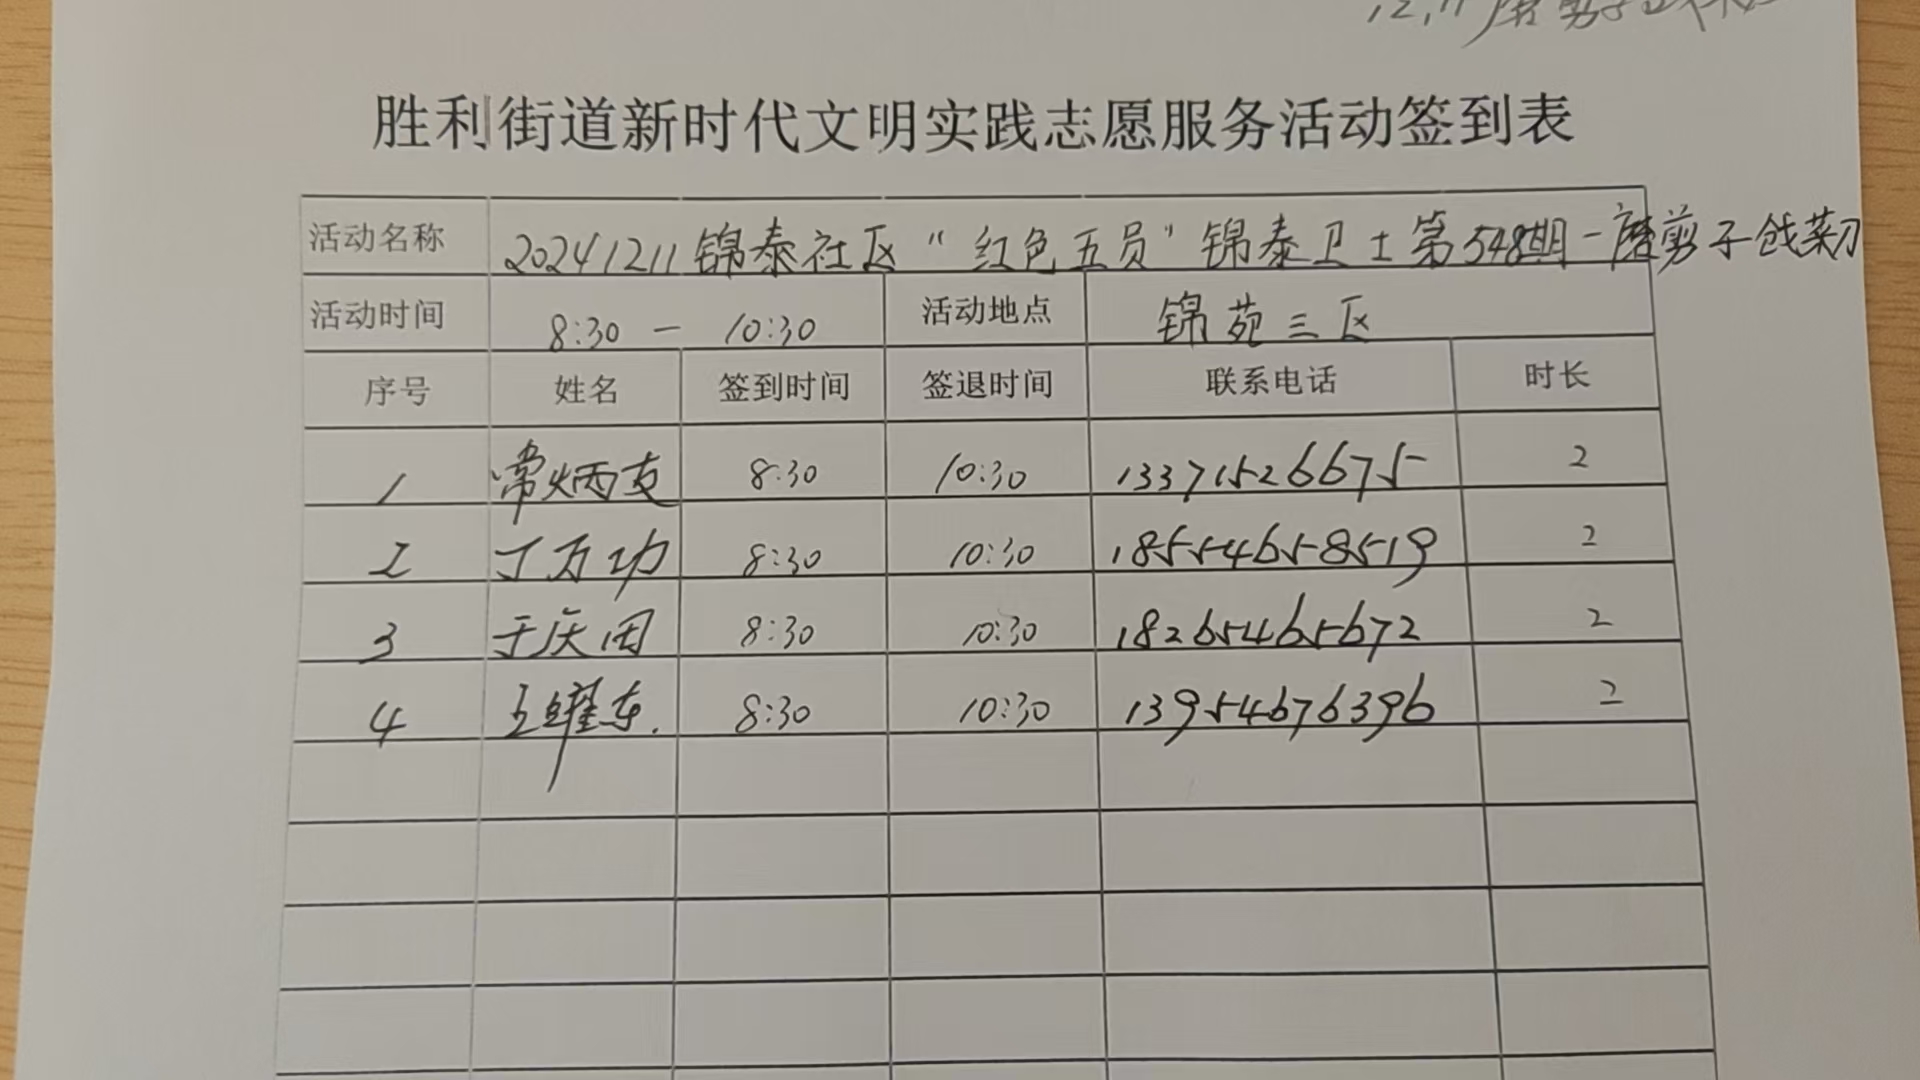 胜利街道新时代文明实践志愿服务活动签到表
活动名称 20241211锦泰社区“红色五员”锦泰卫士第548期-磨剪子戗菜刀
活动时间 8:30 - 10:30 活动地点 锦苑三区
序号 姓名 签到时间 签退时间 联系电话 时长
1 常炳支 8:30 10:30 13371526675 2
2 丁万功 8:30 10:30 18554658519 2
3 于庆田 8:30 10:30 18265465672 2
4 王耀东 8:30 10:30 13954676396 2